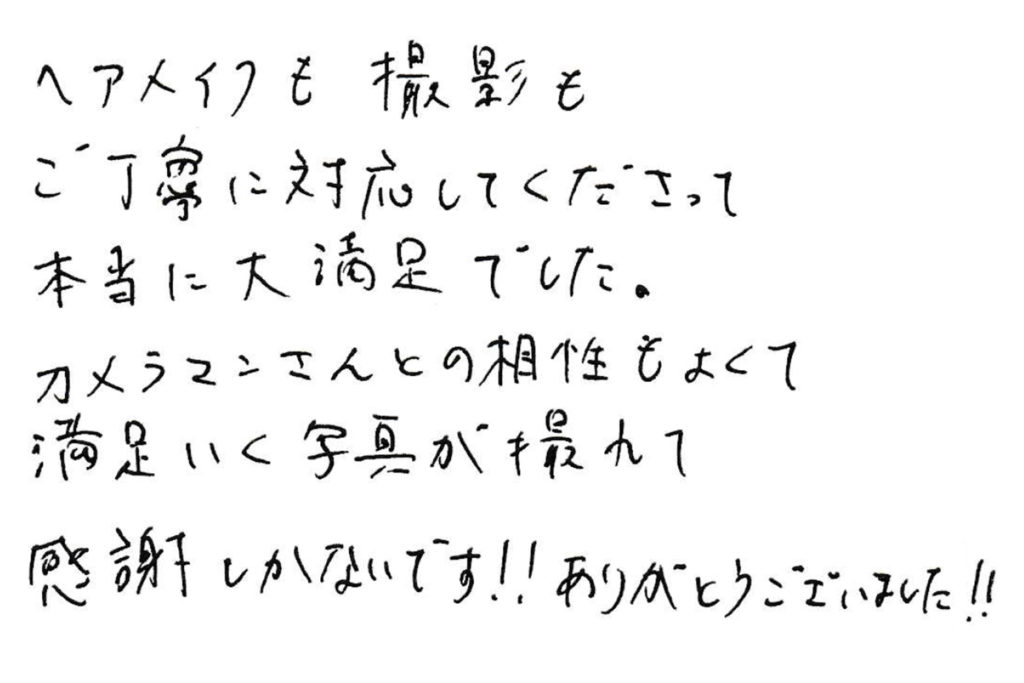 ヘアメイクも 撮影も
ご丁寧に対応してくださって
本当に大満足でした。
カメラマンさんとの相性もよくて
満足いく写真が撮れて
感謝しかないです!! ありがとうございました!!